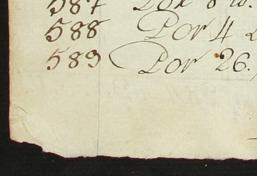 587 Por 8
588 Por 4
589 Por 26.